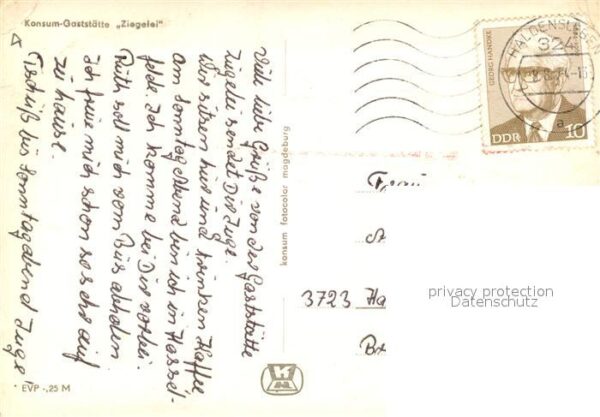 Konsum-Gaststätte „Ziegelei"
Viele liebe Grüße von der Gaststätte
Ziegelei sendet Dir Inge.
Wir sitzen hier und trinken Kaffee
am Sonntag abend bin ich in Hassel-
felde. Ich komme bei Dir vorbei.
Ruth soll mich vom Bus abholen
ich freue mich schon so sehr auf
zu hause.
Tschüß bis Sonntagabend Inge!
EVP -,25 M
konsum fotocolor magdeburg
HALDENSLEBEN
324
a
GEORG HANDKE
DDR 10
Frau
3723 Ha
privacy protection
Datenschutz